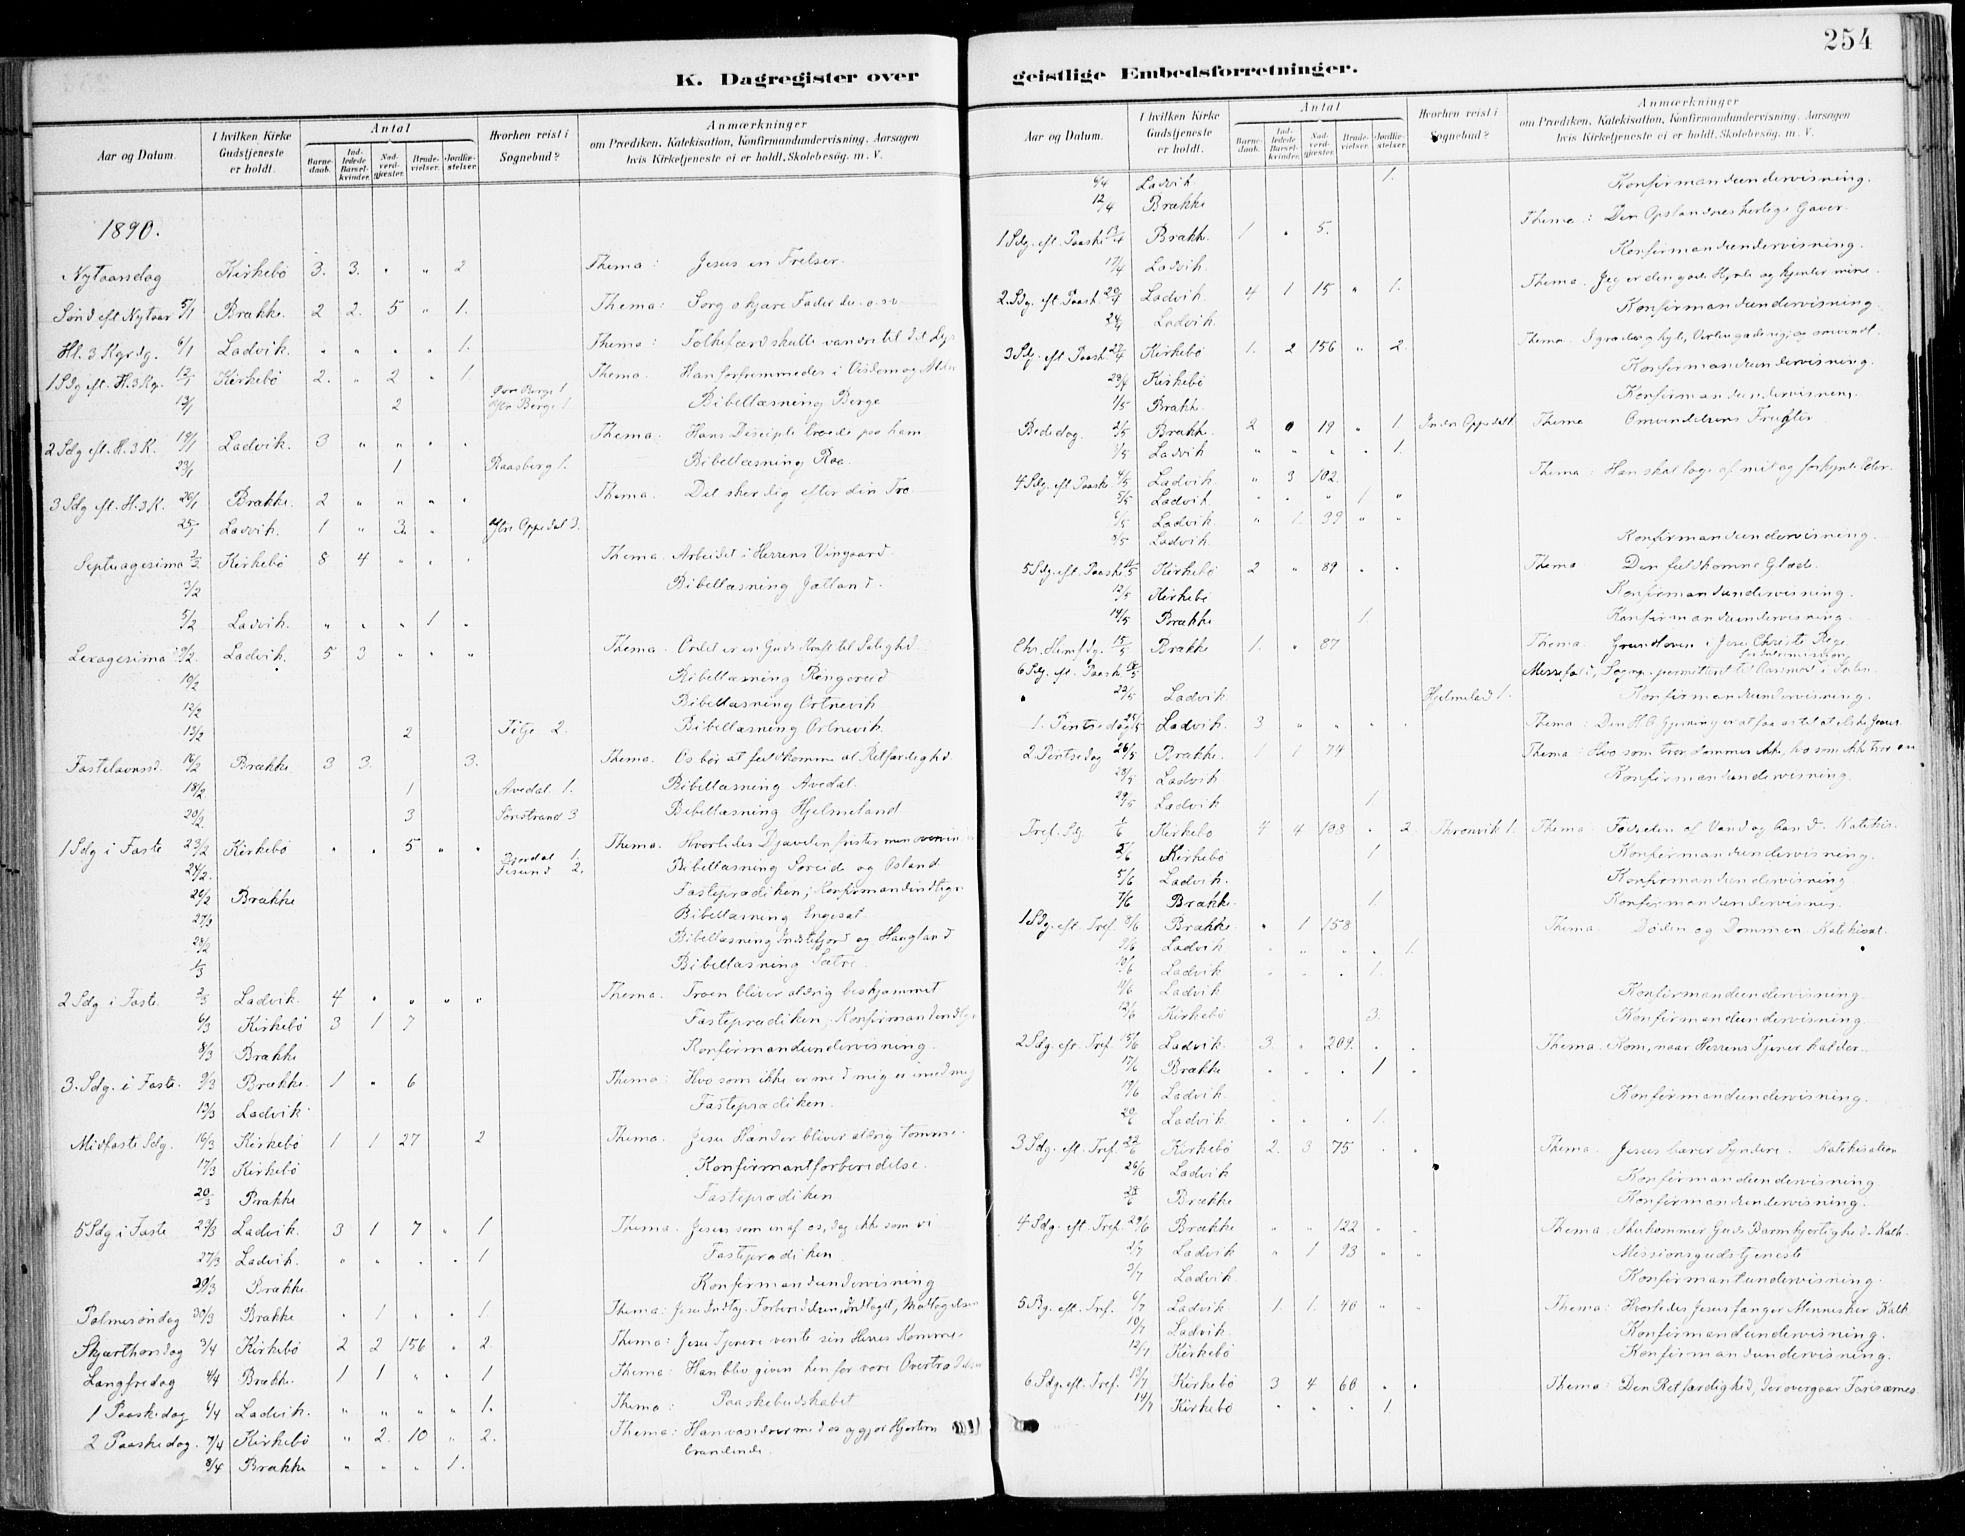 254
K. Dagregister over
Aar og Datum.
I hvilken Kirke Gudstjeneste er holdt.
Antal
Barnedaab.
Indledede Barselkvinder.
Nadverdgjæster.
Brudevielser.
Jordfæstelser.
Hvorhen reist i Sognebud?
Anmærkninger
om Prædiken, Katekisation, Konfirmandundervisning, Aarsagen
hvis Kirketjeneste ei er holdt, Skolebesøg, m. V.
1890.
Nytaarsdag Kirkebö 3. 3. " " 2 Thema: Jesus en Frelser.
Sönd eft Nytaar 5/1 Brække. 2 2. 5 " 1. Thema: Sorg o kjære Fader du o.s.v
Hl. 3 Kgrdg. 6/1 Ladvik. " " " " 1. Thema: Folkefærd skulle vandre til dit Lys
1 Sdg eft. H. 3 Kg. 12/1 Kirkebö 2. " 2 " 1 Thema. Han forfremmedes i Visdom og Alder
13/1 2 Berge 1 Bibellæsning Berge
2 Sdg eft. H. 3 K. 19/1 Ladvik. 3 " " " " Thema. Hans Disciple troede paa ham
23/1 1 Raasberg 1. Bibellæsning Raa.
3 Sdg eft. H. 3 K. 26/1 Brække. 2 " " " " Thema. Det sker dig efter din Tro
Ladvik. 1 " 3. " Oppedal 3.
Septuagesima 2/2 Kirkebö 8 4 " " " Thema. Arbeidet i Herrens Vingaard.
3/2 Bibellæsning
5/2 Ladvik. " " " 1 "
Sexagesima 9/2 Ladvik. 5 3 " " " Thema. Ordet er en Guds Kraft til Salighed
10/2 Bibellæsning Ringereid
12/2 Bibellæsning Ortnevik
13/2 2 2. Bibellæsning Ortnevik
Fastelavnsd. 16/2 Brække 3 3. 3. Thema. Os bør at fuldkomme al Retfærdighed.
18/2 1 Avedal 1. Bibellæsning Avedal.
20/2. 3 Sönstrand 3 Bibellæsning Hjelmeland
1 Sdg i Faste 23/2 Kirkebö " " 5 " " Thema. Hvorledes Djævelen frister
24/2. 1. 2. Bibellæsning Soreide og Osland
26/2 Brække Fasteprædiken; Konfirmandindtegn
27/2 Bibellæsning Engesæt
28/2 Bibellæsning Indrefjord og Haugland
1/3 Bibellæsning Sætre.
2 Sdg i Faste 2/3 Ladvik. 4 " " " " Thema. Troen bliver aldrig beskjæmmet
6/3 Kirkebö 3 1 7 Fasteprædiken, Konfirmandindtegn
8/3 Brække Konfirmandundervisning.
3. Sdg. i Faste. 9/3 Brække. 1 " 6 Thema: Hvo som ikke er med mig er imod mig
13/3 Ladvik Fasteprædiken.
Midfaste Sdg. 16/3 Kirkebö 1 1 27 2 Thema. Jesu Hænder bliver aldrig tomme.
17/3 Kirkebö Konfirmantforberedelse.
20/3 Brække Fasteprædiken
5 Sdg i Faste 23/3 Ladvik. 3 1 7 " 1 Thema. Jesus som en af os, dog ikke som vi
27/3 Ladvik. " " . . 1 Fasteprædiken
29/3 Brække. Konfirmandundervisning
Palmesöndag 30/3 Brække . 1 . . 1. Thema: Jesu Indtog. Forberedelsen, Indtoget, Modtagelsen
Skjærthorsdag 3/4 Kirkebö 2 2 156 . 2. Thema: Jesu Tjenere vente sin Herres Komme.
Langfredag 4/4 Brække. 1 1 " . 1 Thema: Han blev given hen for vore Overtrædelser
1 Paaskedag 6/4 Ladvik. " " " " 1. Thema: Paaskebudskabet
2 Paaskedag. 7/4 Kirkebö " 2. 10 " 2. Thema: Han vandrer med os og gjør Hjertern
brændende.
8/4 Brække " " " 1.
geistlige Embedsforretninger.
Aar og Datum.
I hvilken Kirke Gudstjeneste er holdt.
Antal
Barnedaab.
Indledede Barselkvinder.
Nadverdgjæster.
Brudevielser.
Jordfæstelser.
Hvorhen reist i Sognebud?
Anmærkninger
om Prædiken, Katekisation, Konfirmandundervisning, Aarsagen
hvis Kirketjeneste ei er holdt, Skolebesøg, m. V.
Ladvik 1. Konfirmandundervisning.
12/4 Brække
1 Sdg. eft. Paaske Brækk. 1 " 5. Thema: Den Opstandnes herlige Gaver.
17/4 Ladvik. Konfirmandundervisning.
2. Sdg. eft. Paask. 20/4 Ladvik. 4 1 15 " 1. Thema. Jeg er den gode Hyrde og kjender mine.
24/4 Ladvik. Konfirmandundervisning.
3 Sdg. eft. Paask. 27/4 Kirkebö 1. 2 156 " 2. Thema.
Kirkebö Konfirmandundervisning.
1/5 Brække. Konfirmandundervisning.
Bededag. 2/5 Brækk. 2 0 19 " 1. Indre Oppedal 1 Thema Omvendelsens Frugter
Ladvik " " " . 1.
4 Sdg. eft. Paaske 4/5 Ladvik. " 3 102. Thema: Han skal tage af mit og forkynde Eder.
5/5 Ladvik . . " 1 "
6/5 Ladvik. " 1. 39 " "
8/5 Ladvik. Konfirmandundervisning.
5 Sdg. eft. Paaske 11/5 Kirkebö 2 " 89 . . Thema. Den fuldkomne Glæde.
12/5 Kirkebö Konfirmandundervisning.
14/5 Brække 1 Konfirmandundervisning.
Chr. Himf. dg. 15/5 Brække 1. " 87 Thema. Grundloven i Jesu Christi Rige
6 Sdg. eft. Paask. 18/5 Messefald, Sogn. permitteret til i Solen.
22/5 Ladvik Hjelmelad 1. Konfirmandundervisning.
1. Pintsedag 25/5 Ladvik. 3 " " . . Thema: Den H. A. Gjerning er at faa os til at elske Jesus.
2. Pintsedag 26/5 Brække. 1 1 74 Thema: Hvo som tror, dømmes ikke, hvo som ikke tror
28/5 Ladvik Konfirmandundervisning.
29/5 Ladvik. 1
Tref. Sdg. 1/6 Kirkebö 4 4 103 . 2. Thronvik 1. Thema: Födselen af Vand og Aand. Katekis.
Kirkebö 1 Konfirmandundervisning.
5/6 Ladvik. Konfirmandundervisning.
7/6 Brække. 1. Konfirmandundervisnig.
1 Sdg. eft. Tref. 8/6 Brække. " 1 158 Thema Döden og Dommen. Katekisat.
9/6 Ladvik " " " . 1.
10/6 Ladvik . . . 1.
11/6 Ladvik Konfirmandundervisning.
12/6 Kirkebö 3. Konfirmandundervisning.
2 Sdg. eft. Tref. 15/6 Ladvik. 3. . 209. . . Thema. Kom, naar Herrens Tjener kalder.
17/6 Brække . . . 1 .
19/6 Ladvik. Konfirmandundervisning.
20/6 Ladvik. . . . 1.
3 Sdg. eft. Tref. 22/6 Kirkebö 2. 3 75 . . Thema. Jesus bærer Syndere. Katekisation
26/6 Ladvik. Konfirmandundervisning
28/6 Brække Konfirmandundervisning.
4 Sdg. eft. Tref. 29/6 Brække " " 122 " . Thema. Guds Barmhjertighed. Kath.
2/7 Ladvik " 1 93 " " Missionsgudstjeneste
3/7 Ladvik. Konfirmantundervisning.
5 Sg. eft. Tref. 6/7 Ladvik 1. 1. 40 " " Thema: Hvorledes Jesus fanger Mennesker Kath
10/7 Ladvik. Konfirmandundervisning.
12/7 Kirkebö Konfirmandundervisning.
6 Sdg. eft. Tref. 13/7 Kirkebö 3 4 60 . . Thema: Den Retfærdighed, der overgaar Farisæernes
14/7 Kirkebö . . . 1